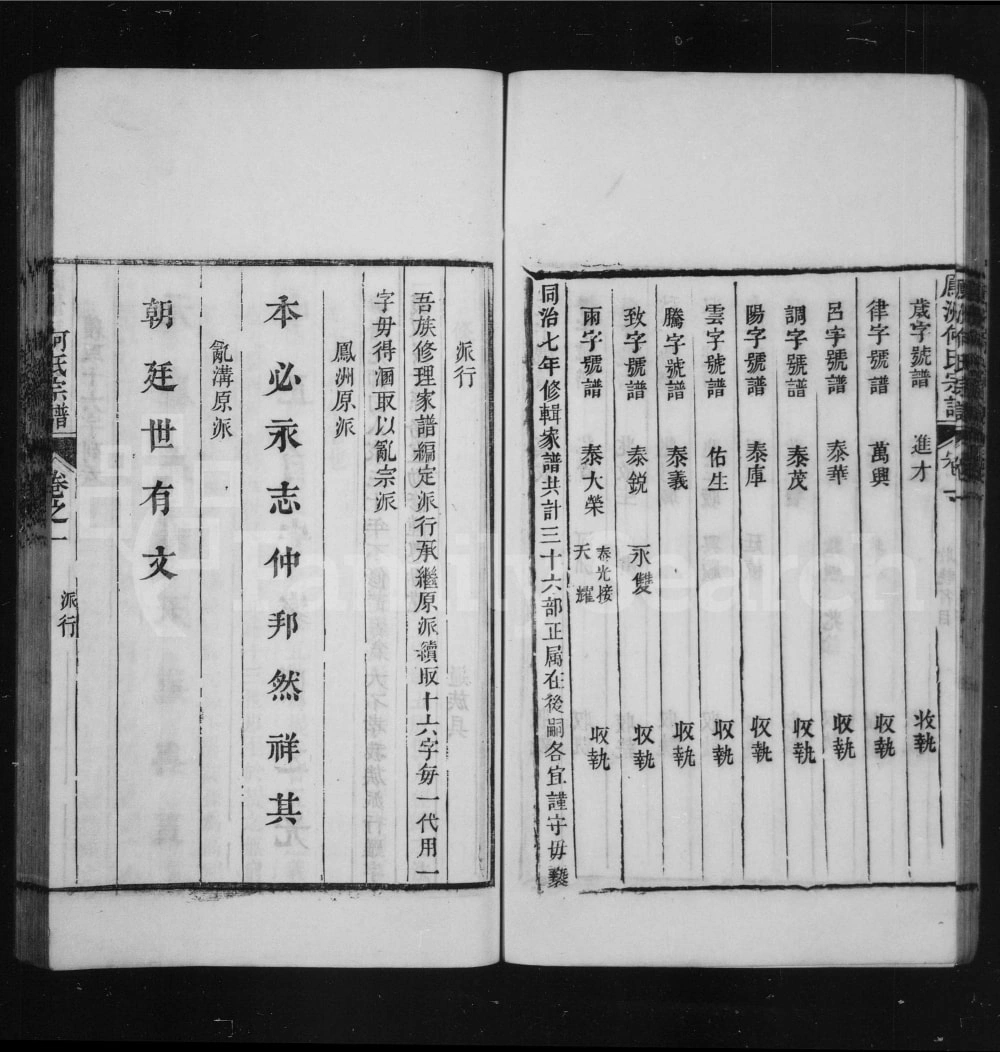 鳳洲何氏宗譜
歲字號譜 進才 收執
律字號譜 萬興 收執
呂字號譜 泰華 收執
調字號譜 泰茂 收執
陽字號譜 泰庫 收執
雲字號譜 佑生 收執
騰字號譜 泰義 收執
致字號譜 泰銳 永雙 收執
雨字號譜 泰大榮 泰光接 天耀 收執
同治七年修輯家譜共計三十六部正属在後嗣各宜謹守毋褻
派行
吾族修理家譜編定派行承繼原派續取十六字每一代用一
字毋得混取以亂宗派
鳳洲原派
本必永志仲邦然祥其
亂溝原派
朝廷世有文
何氏宗譜 卷之一 派行
FamilySearch